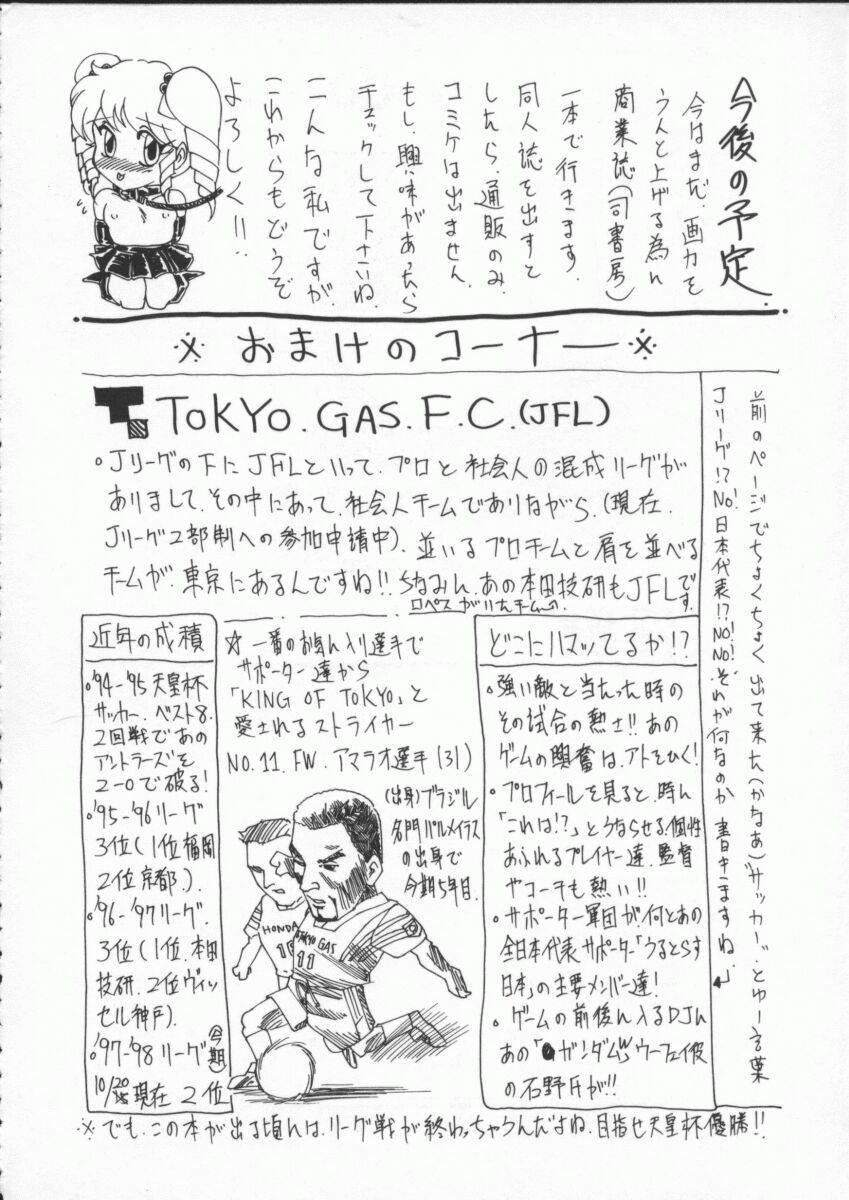 今後の予定
今はまだ、画力を
うんと上げる為に
商業誌(司書房)
一本で行きます。
同人誌を出すと
したら、通販のみ。
コミケは出ません。
もし、興味があったら
チェックして下さいね。
こんな私ですが、
これからもどうぞ
よろしく!!
※ おまけのコーナー ※
前のページでちょくちょく出て来た(かなあ)"サッカー"とゆー言葉
Jリーグ!? NO! 日本代表!? NO! NO! それが何なのか書きますね。
TOKYO.GAS.F.C.(JFL)
・Jリーグの下にJFLといって、プロと社会人の混成リーグが
ありまして、その中にあって、社会人チームでありながら、(現在、
Jリーグ2部制への参加申請中)、並いるプロチームと肩を並べる
チームが、東京にあるんですね!! ちなみに、あの本田技研もJFLです。
ロペスがいたチーム
近年の成績
・'94-'95 天皇杯
サッカー、ベスト8。
2回戦であの
アントラーズを
2-0で破る!
・'95-'96リーグ
3位(1位福岡
2位京都)。
・'96-'97リーグ。
3位(1位、本田
技研、2位ヴィッ
セル神戸)。
・'97-'98リーグ(今期)
10/20現在 2位
☆ 一番のお気に入り選手で
サポーター達から
「KING OF TOKYO」と
愛されるストライカー
NO.11. FW. アマラオ選手(31)
(出身)ブラジル
名門パルメイラス
の出身で
今期5年目。
HONDA
TOKYO GAS
11
どこにハマッてるか!?
・強い敵と当たった時の
その試合の熱さ!! あの
ゲームの興奮は、アトをひく!
・プロフィールを見ると、時に
「これは!?」とうならせる、個性
あふれるプレイヤー達。監督
やコーチも熱い!!
・サポーター軍団が、何とあの
全日本代表サポーター「うるとらす
日本」の主要メンバー達!
・ゲームの前後に入るDJに
あの「ガ!ダムW」ウーフェイ役
の石野氏が!!
※でも、この本が出る頃には、リーグ戦が終わっちゃうんだよね、目指せ天皇杯優勝!!